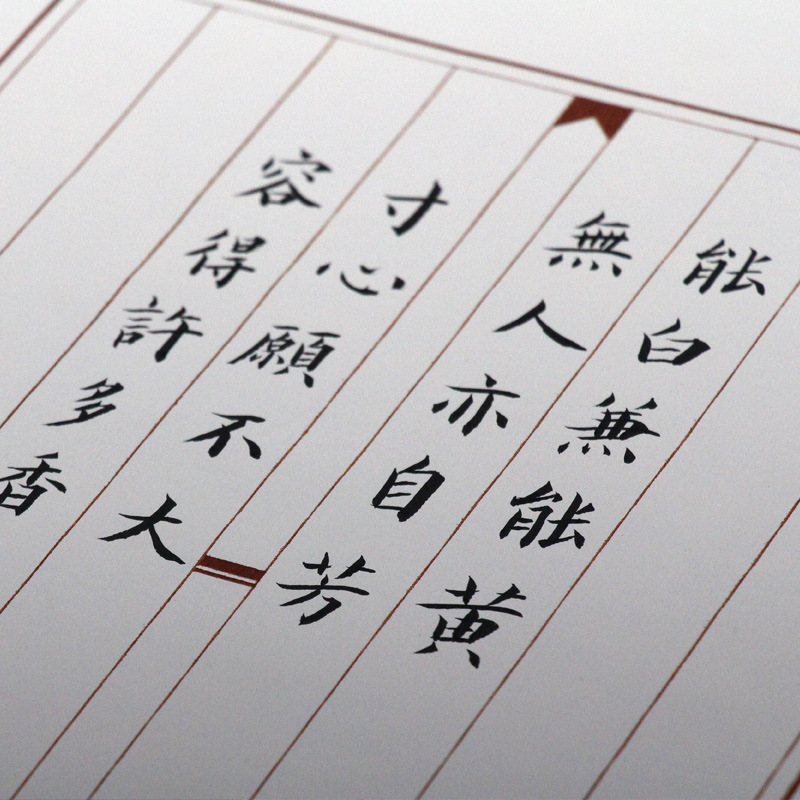 能白兼能黄
無人亦自芳
寸心願不大
容得許多香